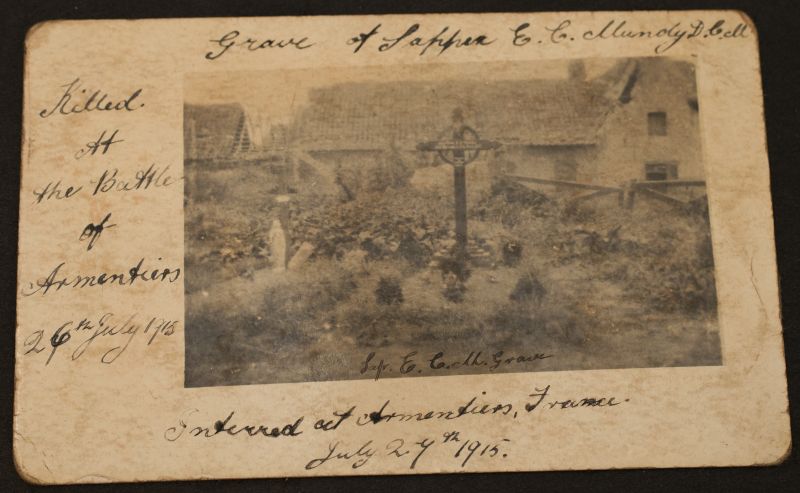 Grave of Sapper E. C. Mundy D.C.M
Killed.
At
the Battle
of
Armentiers
26th July 1915
Sap. E. C. M. Grave
Interred at Armentiers, France.
July 27th 1915.